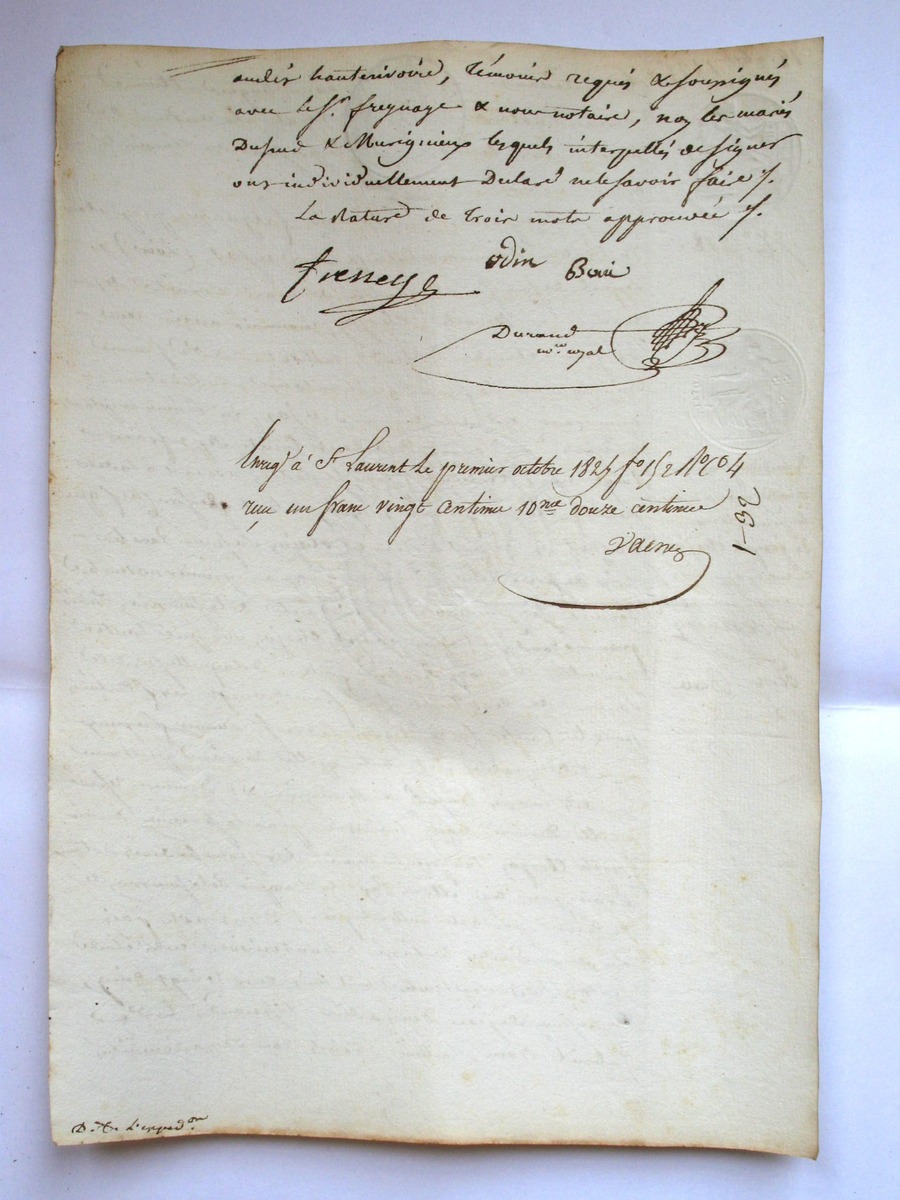 audit hauterivoire, témoins requis & soussignés
avec le Sr. freynage & nous notaire, non les mariés
& Murigneux lesquels interpellés de signer
ont individuellement Declaré ne le savoir faire /.
La Rature de trois mots approuvée /.
odin
Durand
Enregé à St Laurent le premier octobre 182 fo 152 Ro Co 4
reçu un franc vingt centimes 10me douze centimes
1-32